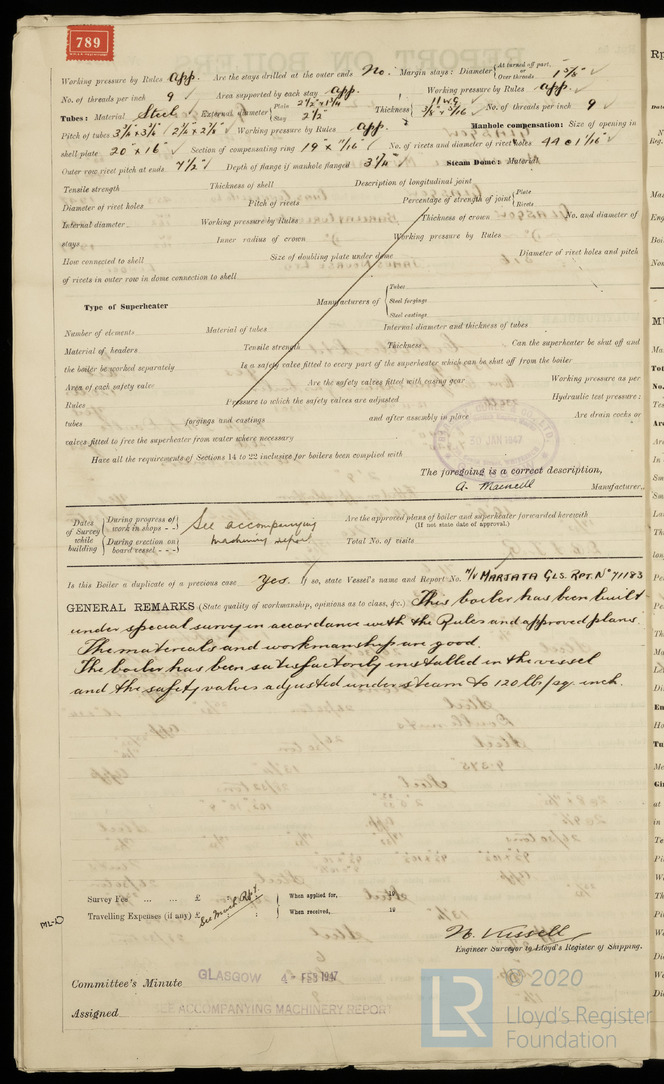 789
Working pressure by Rules App. Are the stays drilled at the outer ends No. Margin stays: Diameter { At turned off part. or Over threads 1 5/8" ✓
No. of threads per inch 9 ✓ Area supported by each stay App. Working pressure by Rules App. ✓
Tubes: Material Steel ✓ External diameter { Plain 2 1/2" Stay 2 1/2" Thickness { 11 W.G 5/16" ✓ No. of threads per inch 9 ✓
Pitch of tubes ✓ Working pressure by Rules App. ✓ Manhole compensation: Size of opening in
shell plate 20" x 16" ✓ Section of compensating ring ✓ No. of rivets and diameter of rivet holes 44 @ 1 1/16" ✓
Outer row rivet pitch at ends 7 1/2" ✓ Depth of flange if manhole flanged 3 1/4" ✓ Steam Dome: Material
Tensile strength Thickness of shell Description of longitudinal joint
Diameter of rivet holes Pitch of rivets Percentage of strength of joint { Plate Rivets
Internal diameter Working pressure by Rules Thickness of crown No. and diameter of
stays Inner radius of crown Working pressure by Rules
How connected to shell Size of doubling plate under dome Diameter of rivet holes and pitch
of rivets in outer row in dome connection to shell
Type of Superheater Manufacturers of { Tubes Steel forgings Steel castings
Number of elements Material of tubes Internal diameter and thickness of tubes
Material of headers Tensile strength Thickness Can the superheater be shut off and
the boiler be worked separately Is a safety valve fitted to every part of the superheater which can be shut off from the boiler
Area of each safety valve Are the safety valves fitted with easing gear Working pressure as per
Rules Pressure to which the safety valves are adjusted Hydraulic test pressure:
tubes forgings and castings and after assembly in place Are drain cocks or
valves fitted to free the superheater from water where necessary
30 JAN 1947
Have all the requirements of Sections 14 to 22 inclusive for boilers been complied with
The foregoing is a correct description,
Manufacturer.
Dates of Survey while building { During progress of work in shops - - During erection on board vessel - - - } See accompanying machinery report
Are the approved plans of boiler and superheater forwarded herewith
(If not state date of approval.)
Total No. of visits
Is this Boiler a duplicate of a previous case Yes. If so, state Vessel's name and Report No. M/V MARTATA GLS. RPT. No 71183
GENERAL REMARKS (State quality of workmanship, opinions as to class, &c.) This boiler has been built
under special survey in accordance with the Rules and approved plans.
The materials and workmanship are good.
The boiler has been satisfactorily installed in the vessel
and the safety valves adjusted under steam to 120 lb/sq. inch.
Survey Fee ... ... £ : : { When applied for, 19
Travelling Expenses (if any) £ : : { When received, 19
See Mach Rpt.
Engineer Surveyor to Lloyd's Register of Shipping.
Committee's Minute GLASGOW 4 - FEB 1947
Assigned SEE ACCOMPANYING MACHINERY REPORT
LR © 2020
Lloyd's Register
Foundation